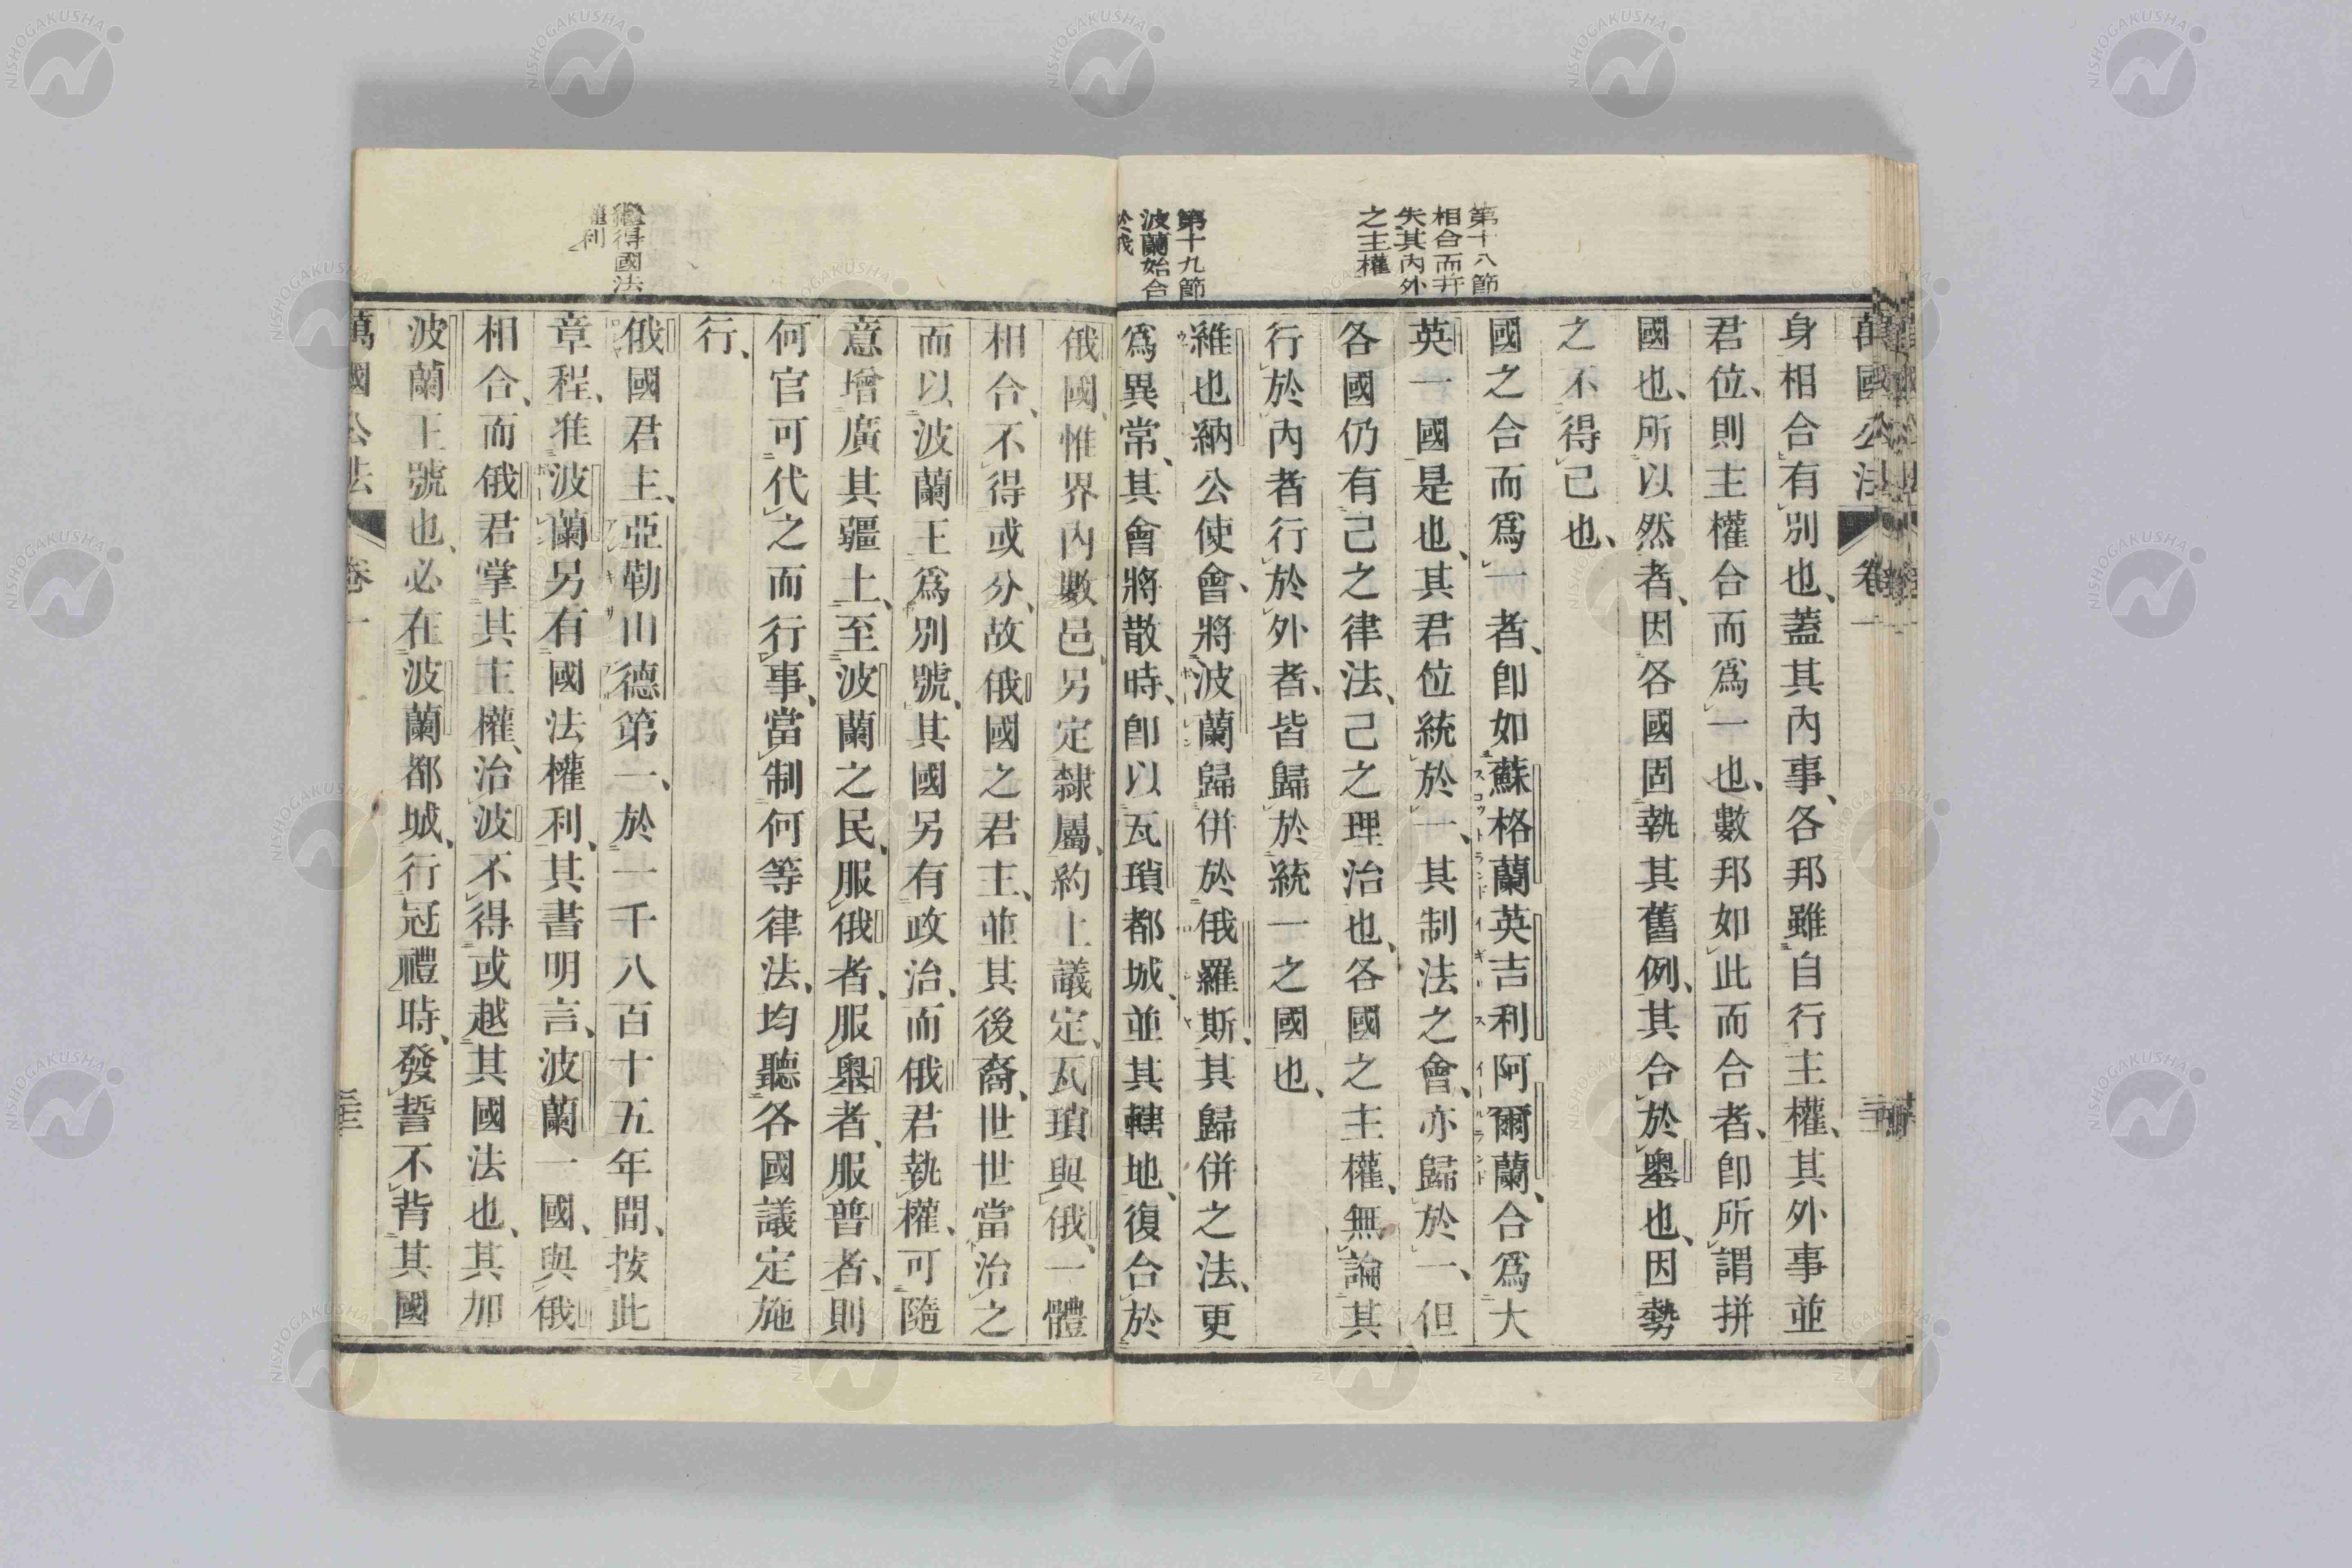 萬國公法 卷一
身相合有別也、蓋其內事、各邦雖自行主權、其外事並
君位、則主權合而爲一也、數邦如此而合者、卽所謂拼
國也、所以然者、因各國固執其舊例、其合於奧也、因勢
之不得已也、
第十八節
相合而并
失其內外
之主權
國之合而爲一者、卽如蘇格蘭英吉利阿爾蘭、合爲大
英一國是也、其君位統於一、其制法之會、亦歸於一、但
各國仍有己之律法、己之理治也、各國之主權、無論其
行於內者行於外者、皆歸於統一之國也、
第十九節
波蘭始合
於俄
維也納公使會、將波蘭歸併於俄羅斯、其歸併之法、更
爲異常、其會將散時、卽以瓦瑣都城、並其轄地、復合於
俄國、惟界內數邑、另定隸屬、約上議定、瓦瑣與俄、一體
相合、不得或分、故俄國之君主、並其後裔、世世當治之
而以波蘭王爲別號、其國另有政治、而俄君執權、可隨
意增廣其疆土、至波蘭之民、服俄者、服奧者、服普者、則
何官可代之而行事、當制何等律法、均聽各國議定施
行、
繼得國法
權利
俄國君主、亞勒山德第一、於一千八百十五年間、按此
章程、准波蘭另有國法權利、其書明言、波蘭一國、與俄
相合、而俄君掌其主權、治波不得或越其國法也、其加
波蘭王號也、必在波蘭都城、行冠禮時、發誓不背其國
萬國公法 卷一